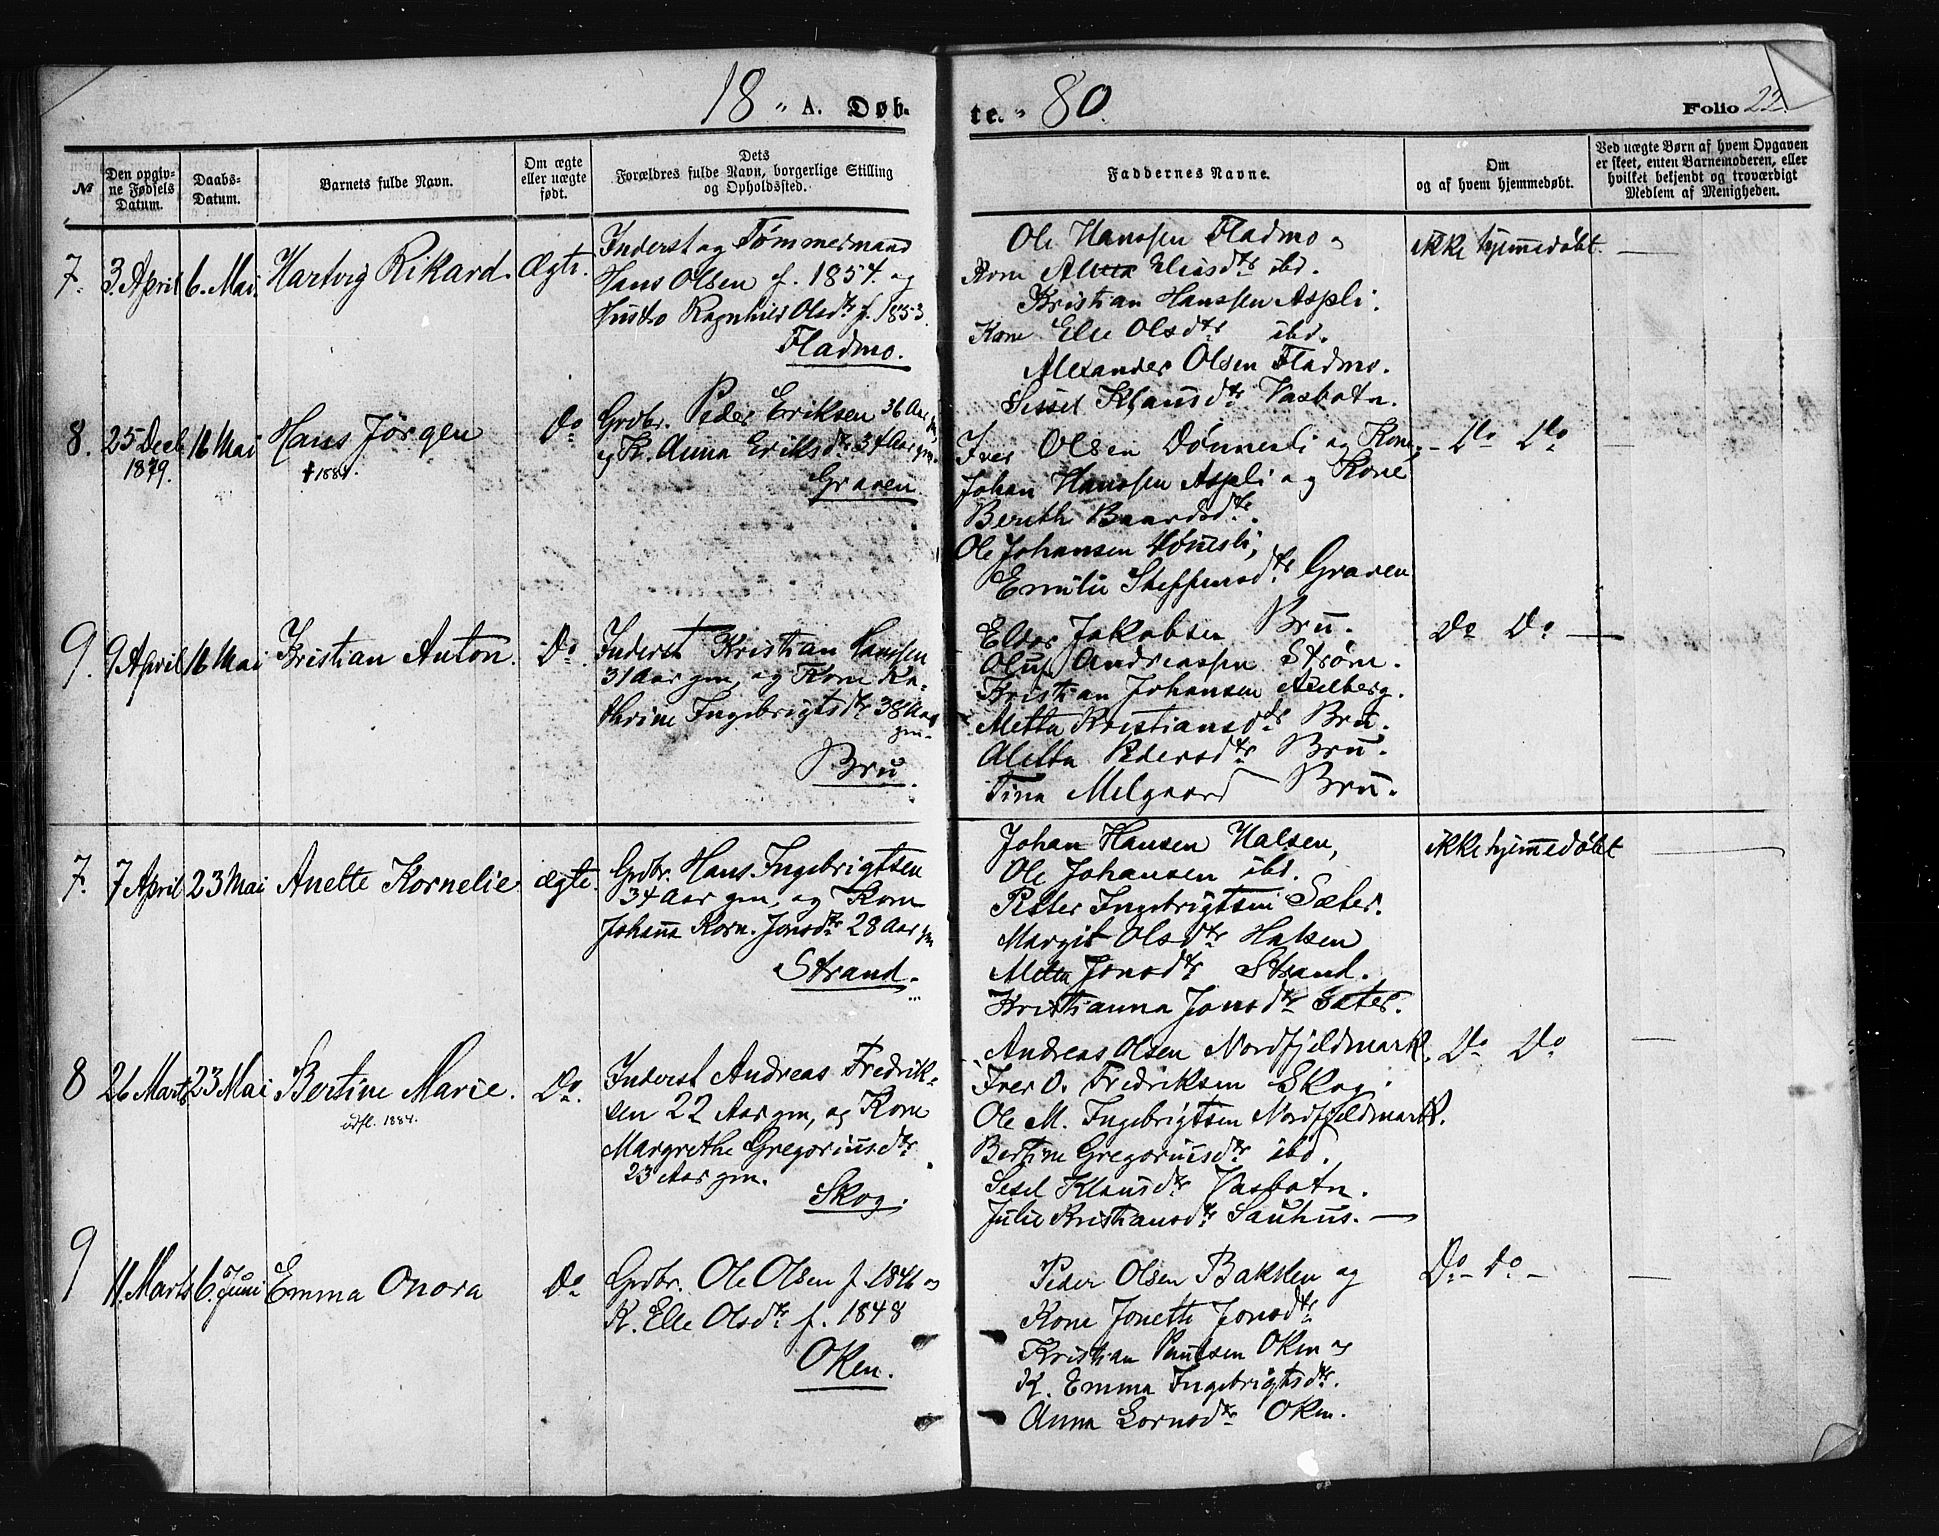 18 " A. Døb-
te. " 80.
Folio 22.
№
Den opgiv-
ne Fødsels
Datum.
Daabs-
Datum.
Barnets fulde Navn.
Om ægte
eller uægte
født.
Dets
Forældres fulde Navn, borgerlige Stilling
og Opholdssted.
Faddernes Navne.
Om
og af hvem hjemmedøbt.
Ved uægte Børn af hvem Opgaven
er skeet, enten Barnemoderen, eller
hvilket bekjendt og troværdigt
Medlem af Menigheden.
7. 3 April 6. Mai. Hartvig Rikard. Ægte.
Inderst og Tømmermand
Hans Olsen f. 1854. og
Hustro Ragnhild Olsdtr f. 1853.
Fladmo.
Ole Hanssen Fladmo og
Kone Eliasdtr ibd.
Kristian Hanssen Aspli.
Kone Else Olsdtr ibd.
Alexander Olsen Fladmo.
Sissel Klausdtr Vasbotn.
ikke hjemmedøbt. —
8. 25 Decb 1879. 16 Mai Hans Jørgen Do
† 1884.
Grdbr. Peder Eriksen 36 Aar gm,
og K. Anna Eriksdtr 34 Aar gm.
Graven
Iver Olsen Dønnesli og Kone,
Johan Hanssen Aspli og Kone
Berith Baardsdtr.
Ole Johansen Dønesli,
Emilie Steffensdtr Graven
- Do Do —
9. 9 April 16 Mai Kristian Anton. Do
Inderst Kristian Hanssen
31 Aar gm, og Kone Ka-
thrine Ingebrigtsdtr 38 Aar
gm.
Bru.
Eldor Jakobsen Bru.
Oluf Andreassen Strøm.
Kristian Johansen Aulberg.
Metta Kristiansdtr Bru.
Aletta Pedersdtr Bru.
Tina Melgaard Bru.
Do Do —
7. 7 April 23 Mai Anette Kornelie ægte.
Grdbr. Hans Ingebrigtsen
34 Aar gm, og Kone
Johanna Korn. Jonsdtr 28 Aar gm
Strand.
Johan Hansen Halsen,
Ole Johansen ibd.
Peter Ingebrigtsen Sæter.
Margit Olsdtr Halsen
Metta Jonsdtr Strand.
Kristianna Jonsdtr Sæter.
ikke hjemmedøbt —
8 26 Marts 23 Mai Bertine Marie. Do.
udfl. 1884.
Inderst Andreas Fredrik-
sen 22 Aar gm, og Kone
Margrethe Gregoriusdtr
23 Aar gm.
Skog.
Andreas Olsen Nordfjeldmark.
Iver O. Fredriksen Skog.
Ole M. Ingebrigtsen Nordfjeldmark.
Bertine Gregoriusdtr ibd.
Sesel Klausdtr Vasbotn.
Julie Kristiansdtr Sauhus. —
Do Do —
9 11. Marts 6. Juni Emma Onora Do
Grdbr. Ole Olsen f. 1846 og
K. Else Olsdtr f. 1848
Oken.
Peder Olsen Bakken og
Kone Jonette Jonsdtr
Kristian Paulsen Oken og
K. Emma Ingebrigtsdtr.
Anna Lornsdtr Oken.
Do - Do - —